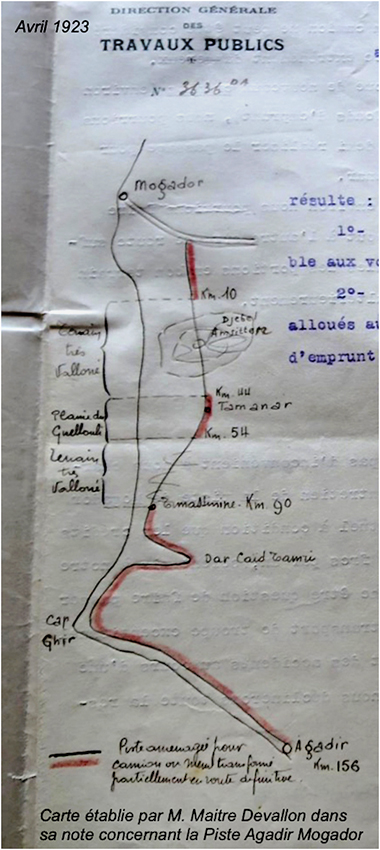 Avril 1923
DIRECTION GÉNÉRALE
DES
TRAVAUX PUBLICS
N° 3636 DA
Mogador
résulte :
1°-
ble aux vo
Km. 10
2°-
Djebel
Amsitten
alloués au
d'emprunt
Terrain
très
Valloné
Km. 44
Tamanar
Plaine du
Guellouli
Km. 54
Terrain
très
Valloné
Km. 90
Dar Caïd Tamri
Cap
Ghir
Agadir
Km. 156
Piste aménagée pour
camion ou même transformé
partiellement en route définitive.
Carte établie par M. Maitre Devallon dans
sa note concernant la Piste Agadir Mogador